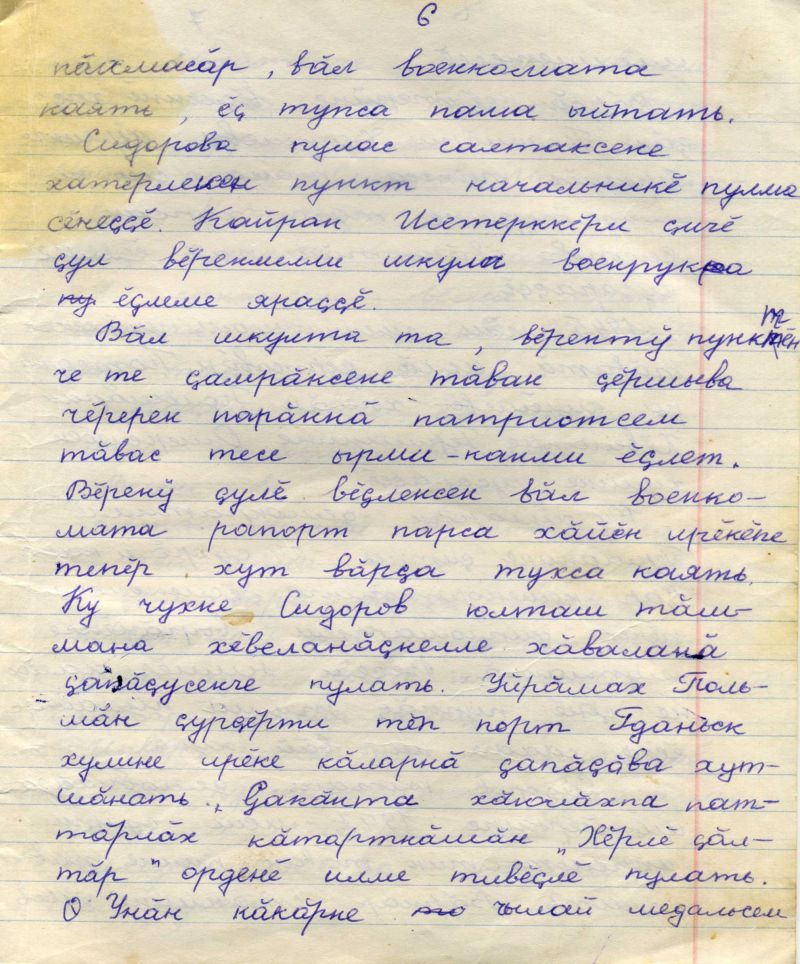 6
пӑхмасӑр, вӑл военкомата
каять, ӗҫ тупса пама ыйтать.
Сидорова пулас салтаксене
хатӗрлекен пункт начальникӗ пулма
сӗнеҫҫӗ. Кайран Исетерккӗри ҫичӗ
ҫул вӗренмелли шкула военрука
ӗҫлеме яраҫҫӗ.
Вӑл шкулта та, вӗрентӳ пунктӗн
че те ҫамрӑксене тӑван ҫӗршыва
чӗререн парӑннӑ патриотсем
тӑвас тесе ырми-канми ӗҫлет.
Вӗренӳ ҫулӗ вӗҫленсен вӑл военко-
мата рапорт парса хӑйӗн ирӗкӗпе
тепӗр хут вӑрҫа тухса каять.
Ку чухне Сидоров юлташ тӑш-
мана хӗвеланӑҫнелле хӑваланӑ
ҫапӑҫусенче пулать. Уйрӑмах Поль-
шӑн ҫурҫӗрти тӗп порт Гданьск
хулине ирӗке кӑларнӑ ҫапӑҫӑва хут-
шӑнать. Ҫакӑнта хӑюлӑхпа пат-
тӑрлӑх кӑтартнӑшӑн „Хӗрлӗ ҫӑл-
тӑр" орденӗ илме тивӗҫлӗ пулать.
Унӑн кӑкӑрне чылай медальсем